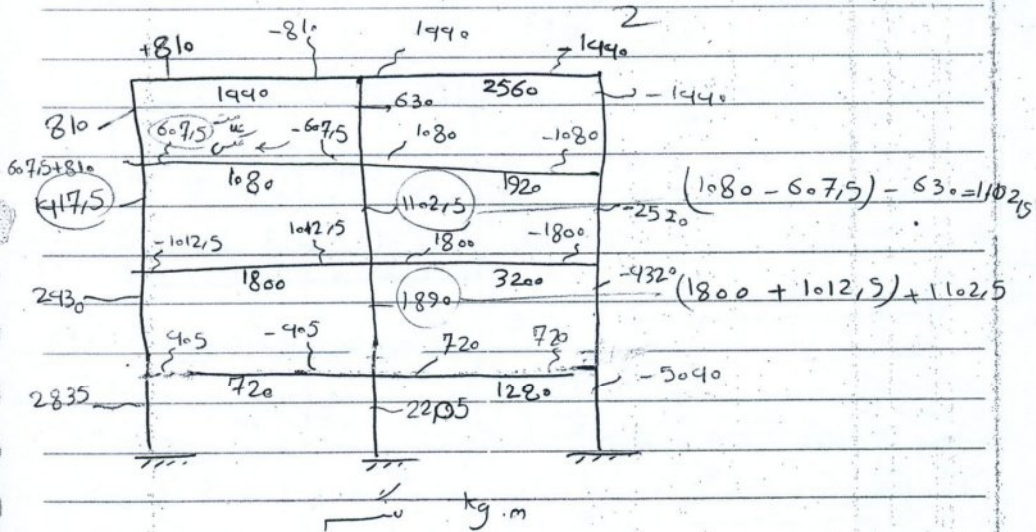 2
+810 -810 1440 -1440
1440 2560 -1440
810 630
607,5 -607,5 1080 -1080
607,5+810
1417,5 1080 1102,5 1920 -2520 (1080 - 607,5) - 630 = 1102,5
-1012,5 1012,5 1800 -1800
1800 3200
2430 1890 -4320 (1800 + 1012,5) + 1102,5
405 -405 720 720
720 1280 -5040
2835 2205
kg.m